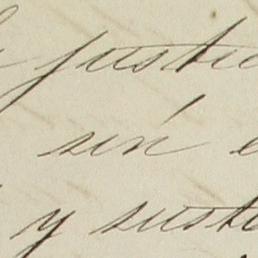 justic
sin
y sust